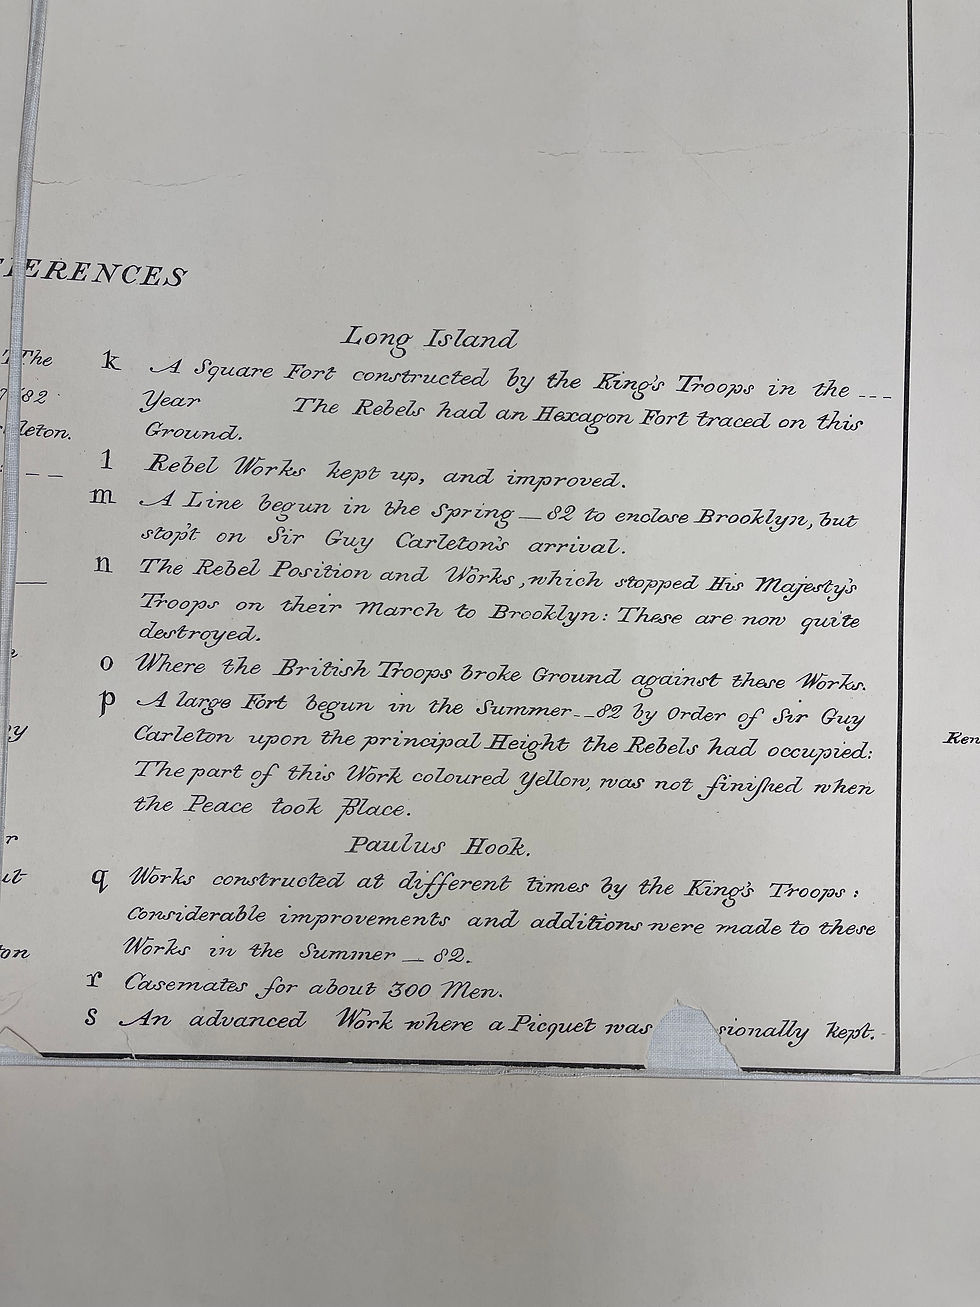 ERENCES
Long Island
The
k A Square Fort constructed by the King's Troops in the ---
82
Year The Rebels had an Hexagon Fort traced on this
leton.
Ground.
l Rebel Works kept up, and improved.
m A Line begun in the Spring _ 82 to enclose Brooklyn, but
stop't on Sir Guy Carleton's arrival.
n The Rebel Position and Works, which stopped His Majesty's
Troops on their March to Brooklyn: These are now quite
destroyed.
o Where the British Troops broke Ground against these Works.
p A large Fort begun in the Summer _ _ 82 by Order of Sir Guy
Carleton upon the principal Height the Rebels had occupied:
The part of this Work coloured Yellow, was not finiſhed when
the Peace took Place.
Paulus Hook.
q Works constructed at different times by the King's Troops:
Considerable improvements and additions were made to these
Works in the Summer _ 82.
r Casemates for about 300 Men.
s An advanced Work where a Picquet was sionally kept.
Ken